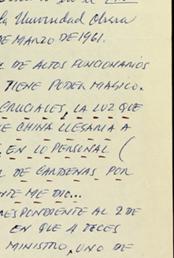 la Universidad Obrera
DE MARZO DE 1961.
DE ALTOS FUNCIONARIOS
TIENE PODER MAGICO.
CRUCIALES, LA LUZ QUE
E CHINA LLEGARIA A
EN LO PERSONAL (
DE CARDENAS POR
NTE ME DIO...
RESPONDIENTE AL 2 DE
EN QUE A VECES
MINISTRO, UNO DE